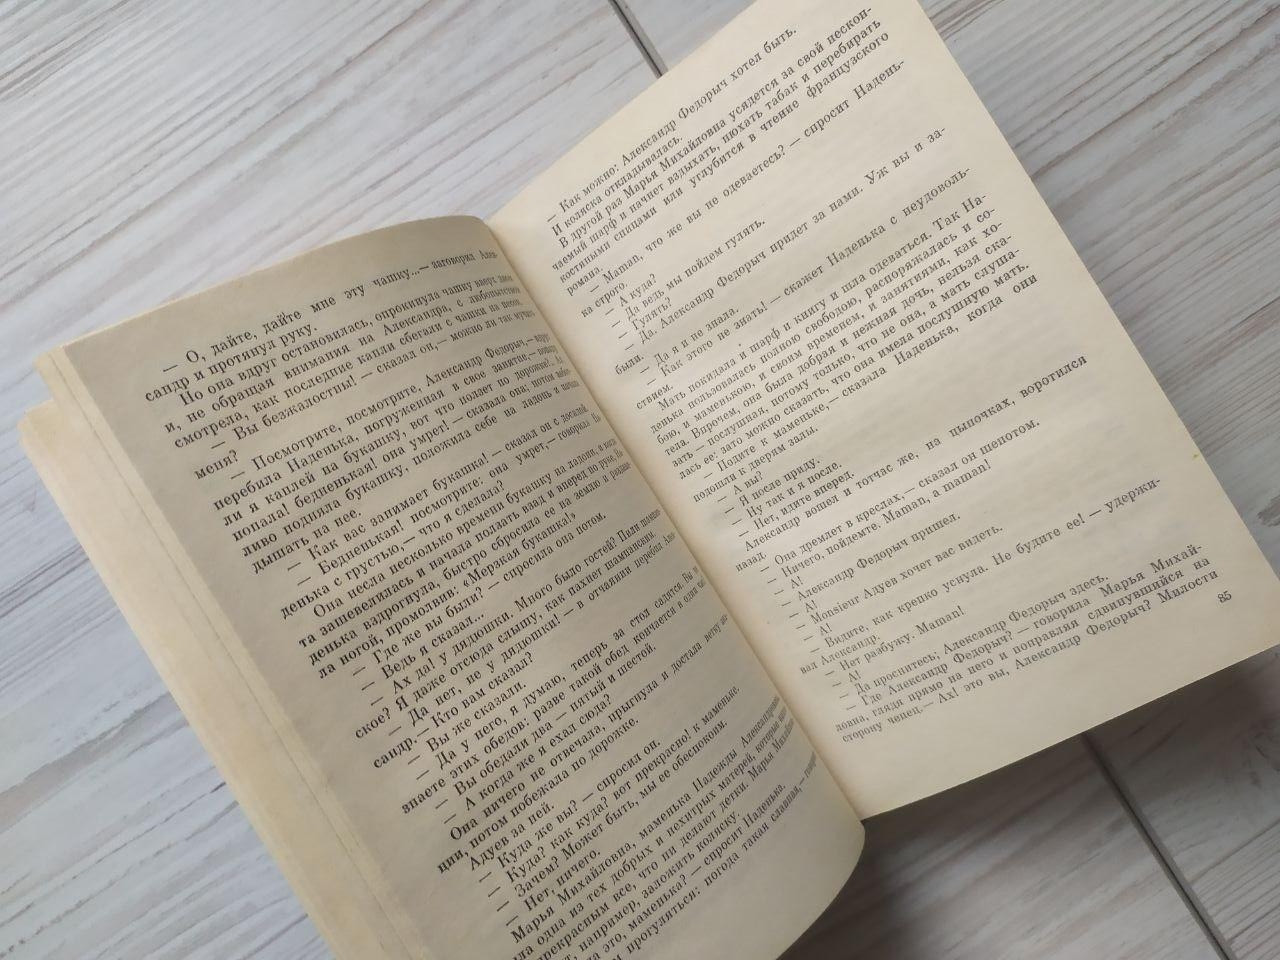 — О, дайте, дайте мне эту чашку...— заговорил Алек-
сандр и протянул руку.
Но она вдруг остановилась, опрокинула чашку вверх дном
и, не обращая внимания на Александра, с любопытством
смотрела, как последние капли сбегали с чашки на песок.
— Вы безжалостны! — сказал он,— можно ли так мучить
меня?
— Посмотрите, посмотрите, Александр Федорыч,—
перебила Наденька, погруженная в свое занятие,—
ли я каплей на букашку, вот что ползет по дорожке?..
попала! бедненькая! она умрет! — сказала она; потом
ливо подняла букашку, положила себе на ладонь и начала
дышать на нее.
— Как вас занимает букашка! — сказал он с досадой.
— Бедненькая! посмотрите: она умрет,— говорила На-
денька с грустью,— что я сделала?
Она несла несколько времени букашку на ладони, и когда
та зашевелилась и начала ползать взад и вперед по руке, На-
денька вздрогнула, быстро сбросила ее на землю и раздави-
ла ногой, промолвив: «Мерзкая букашка!»
— Где же вы были? — спросила она потом.
— Ведь я сказал...
— Ах да! у дядюшки. Много было гостей? Пили шампан-
ское? Я даже отсюда слышу, как пахнет шампанским.
— Да нет, не у дядюшки! — в отчаянии перебил Алек-
сандр.— Кто вам сказал?
— Вы же сказали.
— Да у него, я думаю, теперь за стол садятся. Вы не
знаете этих обедов: разве такой обед кончается в один час?
— Вы обедали два — пятый и шестой.
— А когда же я ехал сюда?
Она ничего не отвечала, прыгнула и достала ветку
ции, потом побежала по дорожке.
Адуев за ней.
— Куда же вы? — спросил он.
— Куда? как куда? вот прекрасно! к маменьке.
— Зачем? Может быть, мы ее обеспокоим.
— Нет, ничего.
Марья Михайловна, маменька Надежды Александровны,
ла одна из тех добрых и нехитрых матерей, которые
прекрасным все, что ни делают детки. Марья Михайловна
т, например, заложить коляску.
да это, маменька? — спросит Наденька.
м прогуляться: погода такая славная,—
— Как можно: Александр Федорыч хотел быть.
И коляска откладывалась.
В другой раз Марья Михайловна усядется за свой нескон-
чаемый шарф и начнет вздыхать, нюхать табак и перебирать
костяными спицами или углубится в чтение французского
романа.
— Maman, что же вы не одеваетесь? — спросит Надень-
ка строго.
— А куда?
— Да ведь мы пойдем гулять.
— Гулять?
— Да. Александр Федорыч придет за нами. Уж вы и за-
были.
— Да я и не знала.
— Как этого не знать! — скажет Наденька с неудоволь-
ствием.
Мать покидала и шарф и книгу и шла одеваться. Так На-
денька пользовалась полною свободою, распоряжалась и со-
бою, и маменькою, и своим временем, и занятиями, как хо-
тела. Впрочем, она была добрая и нежная дочь, нельзя ска-
зать — послушная, потому только, что не она, а мать слуша-
лась ее: зато можно сказать, что она имела послушную мать.
— Подите к маменьке,— сказала Наденька, когда они
подошли к дверям залы.
— А вы?
— Я после приду.
— Ну так и я после.
— Нет, идите вперед.
Александр вошел и тотчас же, на цыпочках, воротился
назад.
— Она дремлет в креслах,— сказал он шепотом.
— Ничего, пойдемте. Maman, а maman!
— А!
— Александр Федорыч пришел.
— А!
— Monsieur Адуев хочет вас видеть.
— А!
— Видите, как крепко уснула. Не будите ее! — удержи-
вал Александр.
— Нет разбужу. Maman!
— А!
— Да проснитесь; Александр Федорыч здесь.
— Где Александр Федорыч? — говорила Марья Михай-
ловна, глядя прямо на него и поправляя сдвинувшийся на
сторону чепец.— Ах! это вы, Александр Федорыч? Милости
85